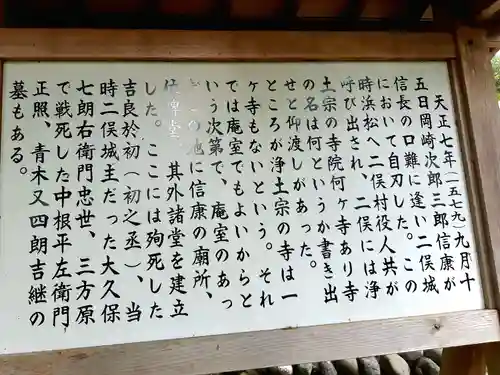 天正七年(一五七九)九月十
五日岡崎次郎三郎信康が
信長の口難に逢い二俣城
において自刃した。この
時浜松へ二俣村役人共が
呼び出され、二俣には浄
土宗の寺院何ヶ寺あり寺
の名は何というか書き出
せと仰渡しがあった。
ところが浄土宗の寺は一
ヶ寺もないという。それ
では庵室でもよいからと
いう次第で、庵室のあっ
の地に信康の廟所、
位牌堂 其外諸堂を建立
した。ここには殉死した
吉良於初(初之丞)、当
時二俣城主だった大久保
七朗右衛門忠世、三方原
で戦死した中根平左衛門
正照、青木又四朗吉継の
墓もある。